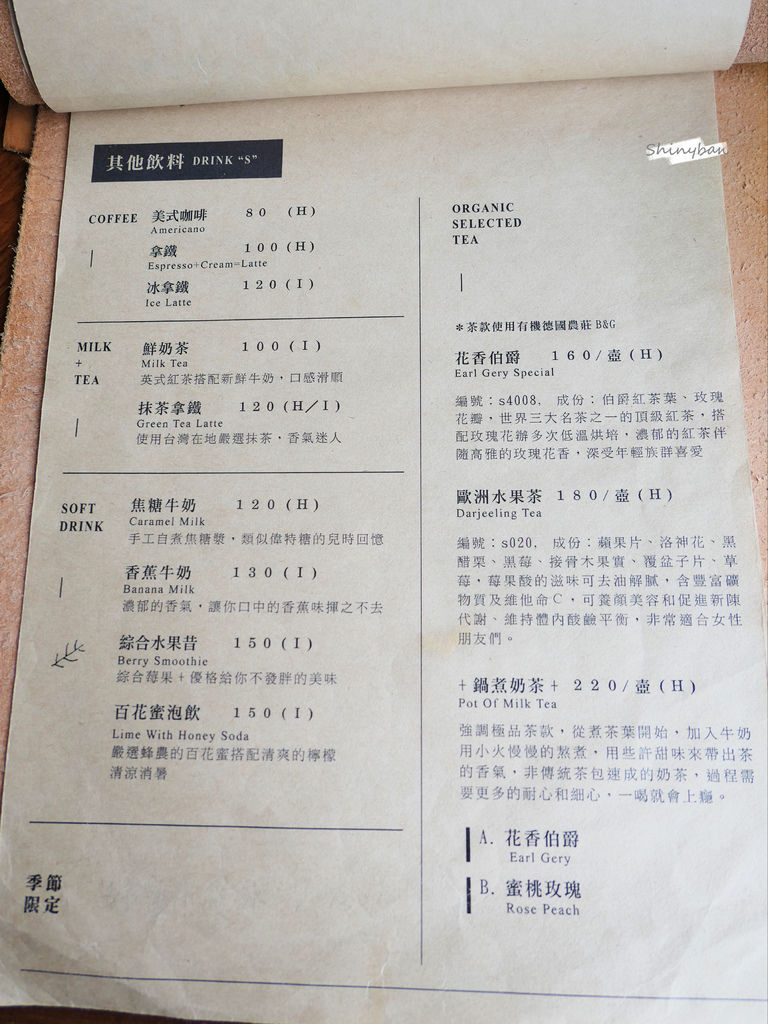 Shinyban
其他飲料 DRINK "S"
COFFEE 美式咖啡 80 (H)
Americano
拿鐵 100 (H)
Espresso+Cream=Latte
冰拿鐵 120 (I)
Ice Latte
MILK
+
TEA
鮮奶茶 100 (I)
Milk Tea
英式紅茶搭配新鮮牛奶，口感滑順
抹茶拿鐵 120 (H/I)
Green Tea Latte
使用台灣在地嚴選抹茶，香氣迷人
SOFT
DRINK
焦糖牛奶 120 (H)
Caramel Milk
手工自煮焦糖漿，類似偉特糖的兒時回憶
香蕉牛奶 130 (I)
Banana Milk
濃郁的香氣，讓你口中的香蕉味揮之不去
綜合水果昔 150 (I)
Berry Smoothie
綜合莓果+優格給你不發胖的美味
百花蜜泡飲 150 (I)
Lime With Honey Soda
嚴選蜂農的百花蜜搭配清爽的檸檬
清涼消暑
季節
限定
ORGANIC
SELECTED
TEA
＊茶款使用有機德國農莊 B&G
花香伯爵 160/壺 (H)
Earl Gery Special
編號：s4008, 成份：伯爵紅茶葉、玫瑰
花瓣，世界三大名茶之一的頂級紅茶，搭
配玫瑰花辦多次低溫烘培，濃郁的紅茶伴
隨高雅的玫瑰花香，深受年輕族群喜愛
歐洲水果茶 180/壺 (H)
Darjeeling Tea
編號：s020, 成份：蘋果片、洛神花、黑
醋栗、黑莓、接骨木果實、覆盆子片、草
莓，莓果酸的滋味可去油解膩，含豐富礦
物質及維他命C，可養顏美容和促進新陳
代謝、維持體內酸鹼平衡，非常適合女性
朋友們。
+鍋煮奶茶+ 220/壺 (H)
Pot Of Milk Tea
強調極品茶款，從煮茶葉開始，加入牛奶
用小火慢慢的熬煮，用些許甜味來帶出茶
的香氣，非傳統茶包速成的奶茶，過程需
要更多的耐心和細心，一喝就會上癮。
A. 花香伯爵
Earl Gery
B. 蜜桃玫瑰
Rose Peach